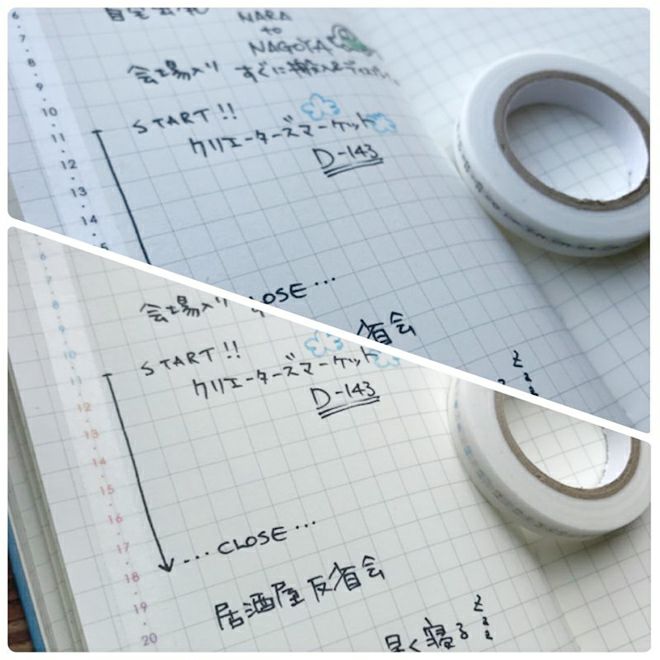 NARA
to
NAGOYA
会場入り すぐに
START!!
クリエーターズマーケット
D-143
LOSE...
省会
6
7
8
9
10
11
12
13
14
会場入り
START!!
クリエーターズマーケット
D-143
...CLOSE...
居酒屋反省会
早く寝る zzz
7
8
9
10
11
12
13
14
15
16
17
18
19
20